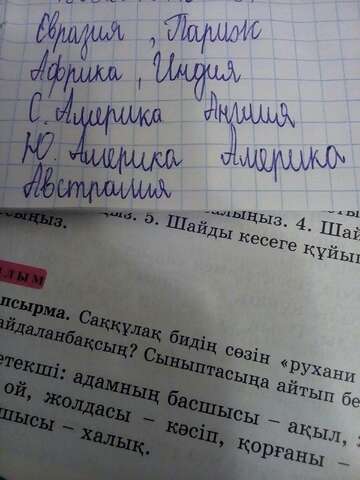 Евразия, Париж
Африка, Индия
С. Америка Англия
Ю. Америка Америка
Австралия
5. Шайды кесеге құйы
4. Шай
ЛЫМ
псырма. Саққұлақ бидің сөзін «рухани
айдаланбақсың? Сыныптасыңа айтып бе
етекші: адамның басшысы – ақыл,
ой, жолдасы – кәсіп, қорғаны –
шысы – халық.